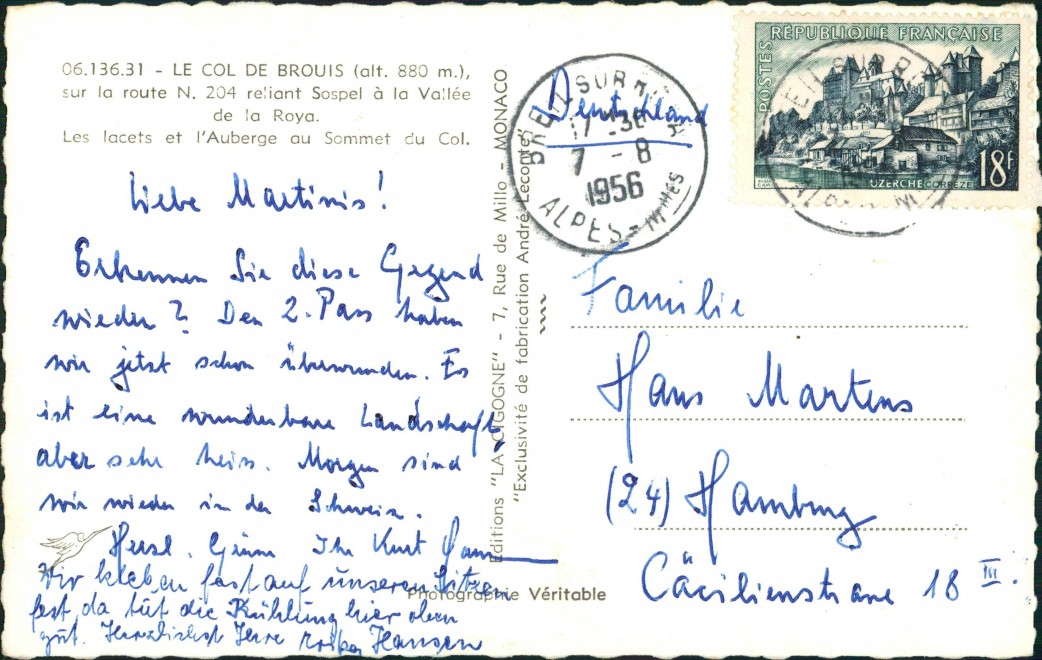 06.136.31 - LE COL DE BROUIS (alt. 880 m.),
sur la route N. 204 reliant Sospel à la Vallée
de la Roya.
Les lacets et l'Auberge au Sommet du Col.
Liebe Martinis!
Erkennen Sie diese Gegend
wieder? Den 2. Pass haben
wir jetzt schon überwunden. Es
ist eine wunderbare Landschaft,
aber sehr heiss. Morgen sind
wir wieder in der Schweiz.
Herzl. Ihr Kurt
Wir kleben fast auf unseren Sitzen
fest, da tut die Kühlung hier oben
gut. Herzlichst Ihre Hansen
Editions "LA CIGOGNE" - 7, Rue de Millo - MONACO
"Exclusivité de fabrication André Leconte"
Photographie Véritable
Deutschland
BREIL SUR ROYA
7 - 8
1956
ALPES-MMES
POSTES RÉPUBLIQUE FRANÇAISE
UZERCHE CORRÈZE 18F
Familie
Hans Martens
(24) Hamburg
Cäcilienstrasse 18 III.